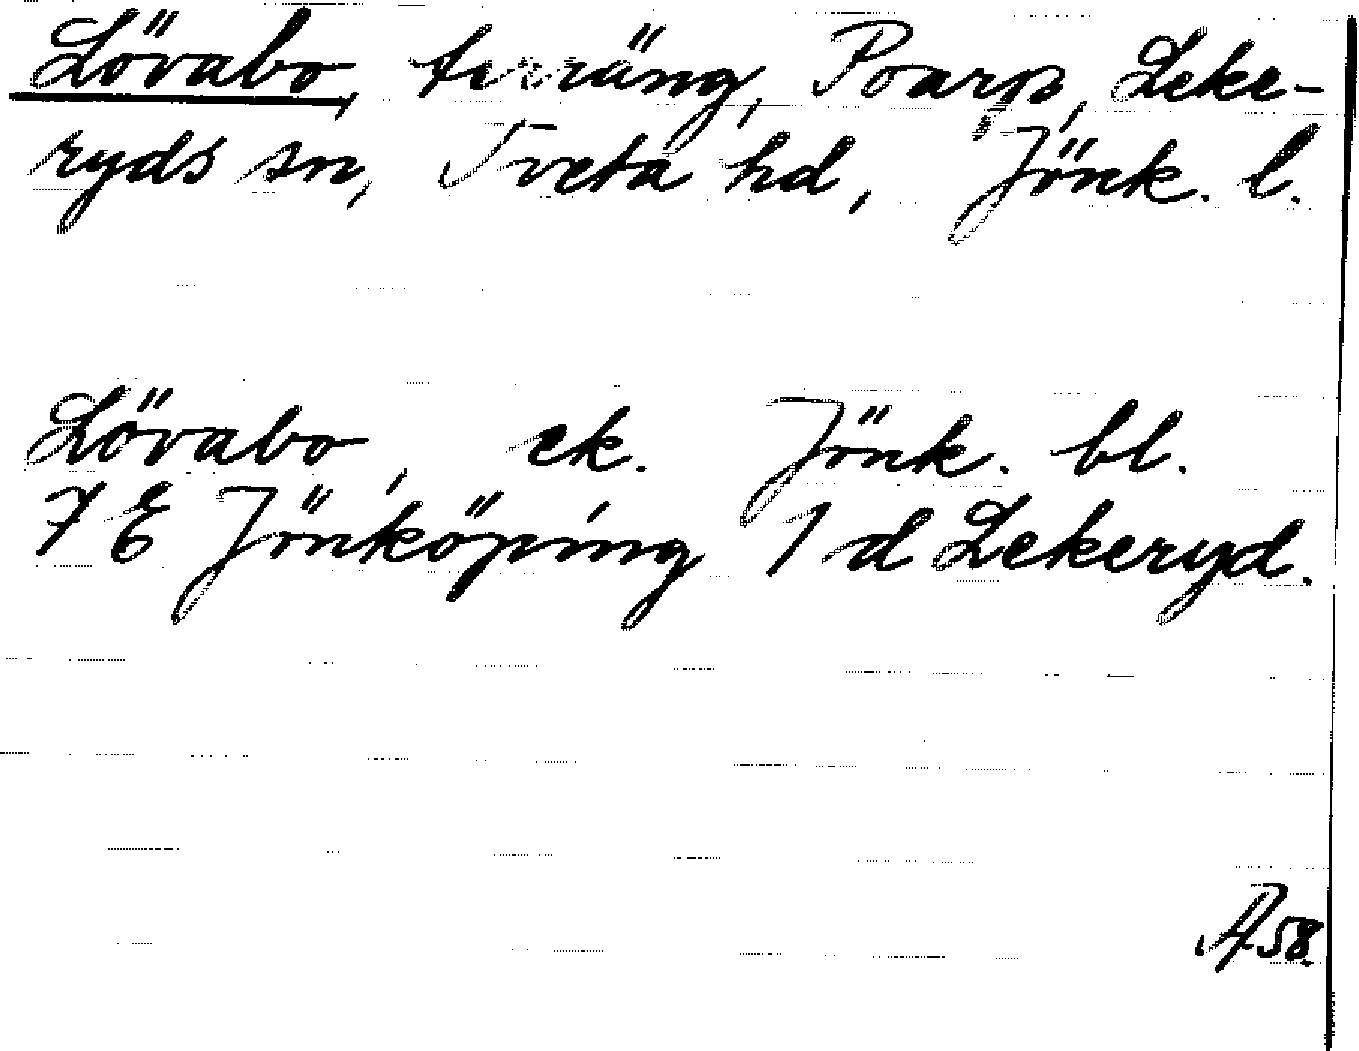 Lövabo, terräng, Poarp, Leke-
ryds sn, Tveta hd, Jönk. l.
Lövabo, ek. Jönk. bl.
7 E Jönköping 1 d Lekeryd.
A 58.